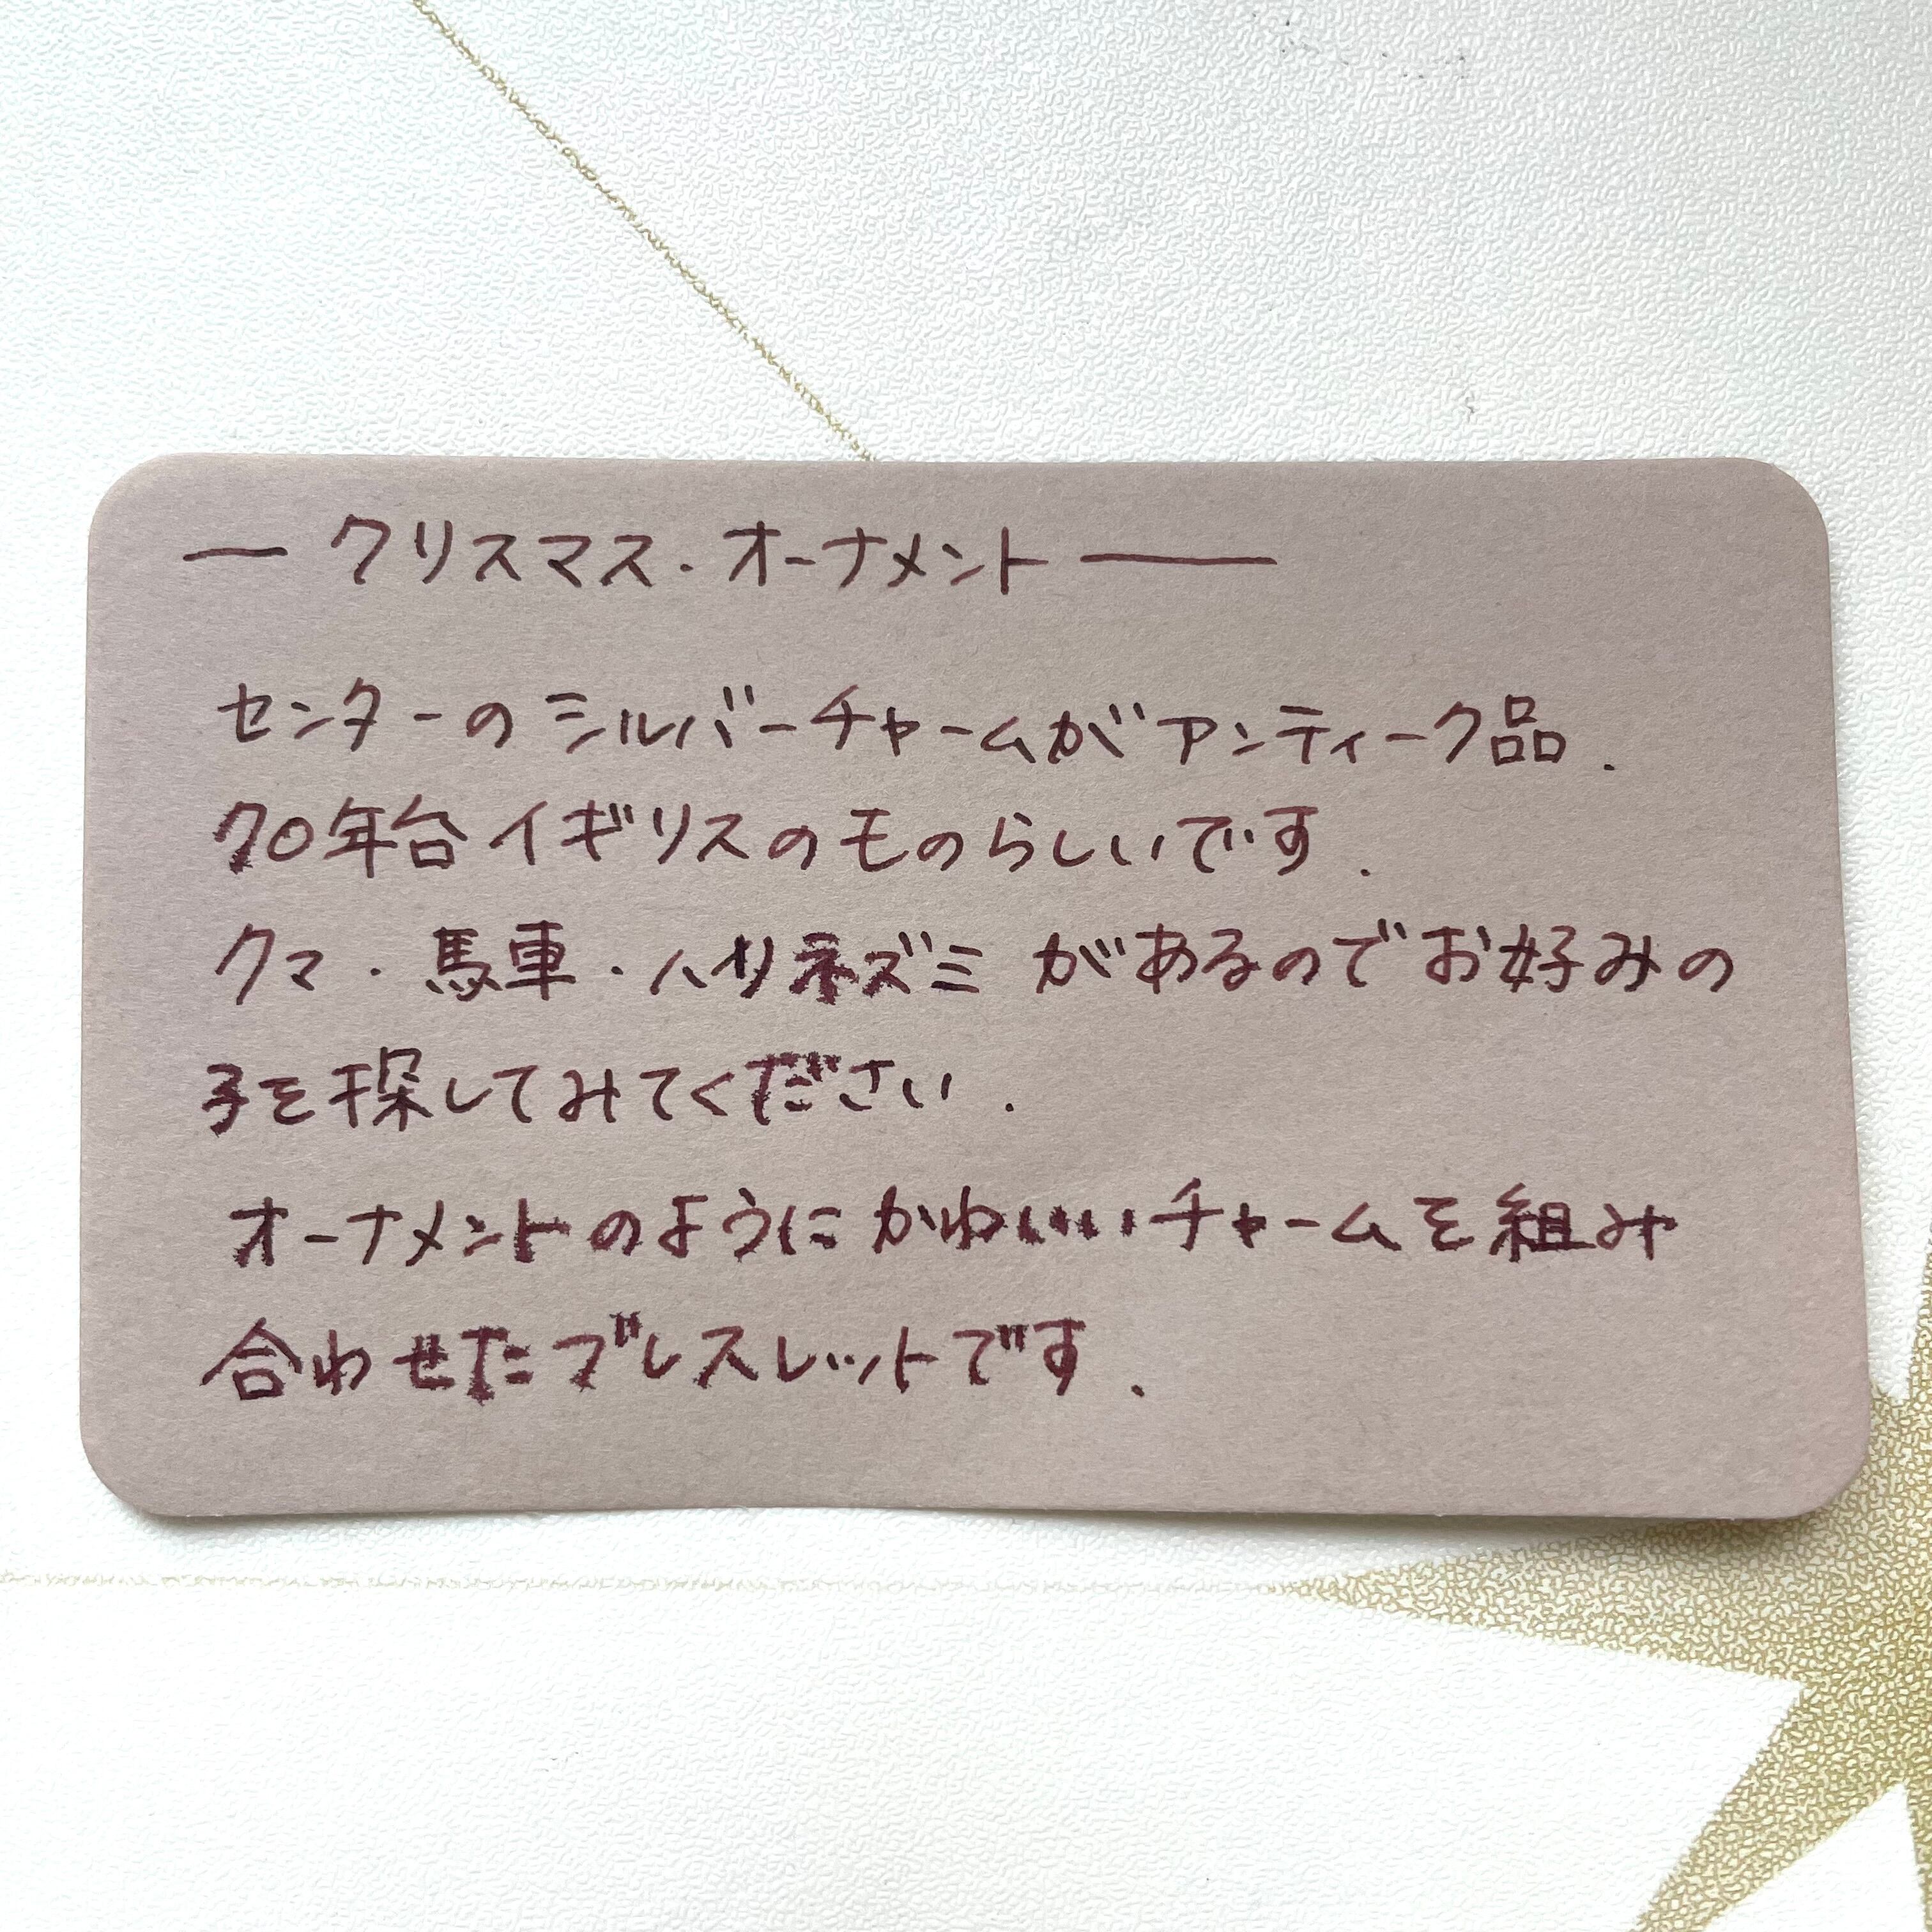 — クリスマス・オーナメント ——
センターのシルバーチャームがアンティーク品.
70年台イギリスのものらしいです.
クマ・馬車・ハリネズミ があるのでお好みの
子を探してみてください.
オーナメントのようにかわいいチャームを組み
合わせたブレスレットです.